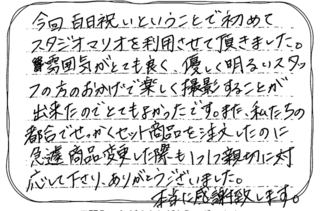 今回百日祝いということで初めて
スタジオマリオを利用させて頂きました。
雰囲気がとても良く、優しく明るいスタッ
フの方のおかげで楽しく撮影することが
出来たのでとてもよかったです。また、私たちの
都合でせっかくセット商品を注文したのに
急遽商品変更した際も1つ1つ親切に対
応して下さり、ありがとうございました。
本当に感謝致します。